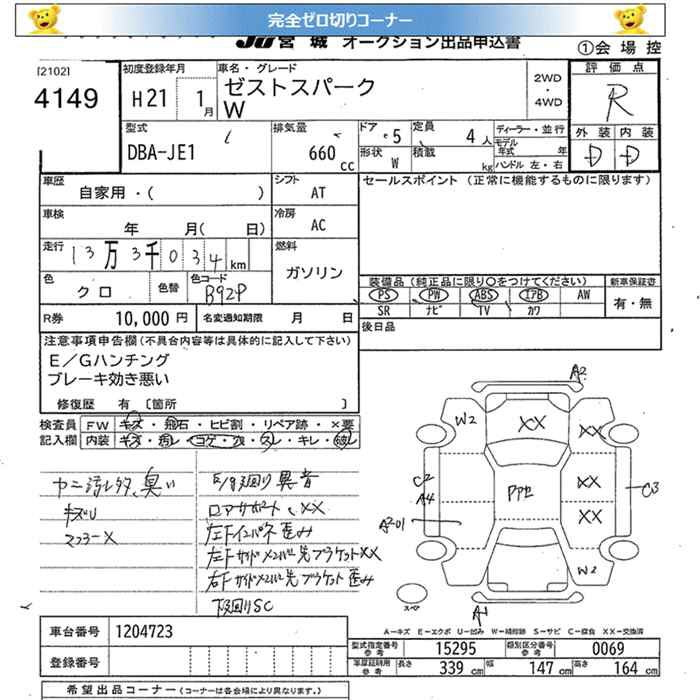 完全ゼロ切りコーナー
JU宮城 オークション出品申込書
①会場控
[2102]
4149
初度登録年月
H21 1月
車名・グレード
ゼストスパーク
W
2WD
・
4WD
評価点
R
外装 内装
D D
型式
DBA-JE1
排気量
660 cc
ドア 5
定員 4人
形状 W
積載 kg
ディーラー・並行
モデル年式 年
ハンドル 左・右
車歴
自家用・( )
シフト
AT
セールスポイント (正常に機能するものに限ります)
車検
年 月( 日)
冷房
AC
走行
13万3千034km
燃料
ガソリン
色
クロ
色替
色コード
B92P
装備品(純正品に限り○をつけてください)
PS PW ABS エアB AW
SR ナビ TV カワ
新車保証書
有・無
R券 10,000円
名変通知期限 月 日
後日品
注意事項申告欄(不具合内容等は具体的に記入して下さい)
E/Gハンチング
ブレーキ効き悪い
修復歴 有 [箇所 ]
検査員 FW キズ・飛石・ヒビ割・リペア跡・×要
記入欄 内装 キズ・汚レ・コゲ・穴・スレ・キレ・破レ
ヤニ汚レ多、臭い
キズU
マフラーX
E/g廻り異音
ロアサポート、XX
左下インパネ歪み
左Fサイドメンバー先ブラケットXX
右Fサイドメンバー先ブラケット歪み
下廻りSC
A2
W2
XX
XX
C2
A4
PPセ
C3
XX
A2U1
W2
スペア
A1
A-キズ E-エクボ U-凹み W-補修跡 S-サビ C-腐食 XX-交換済
車台番号 1204723
型式指定番号 参考 15295
類別区分番号 参考 0069
登録番号
車庫証明用 参考 長さ 339 cm 幅 147 cm 高さ 164 cm
希望出品コーナー(コーナーは各会場により異なります。)